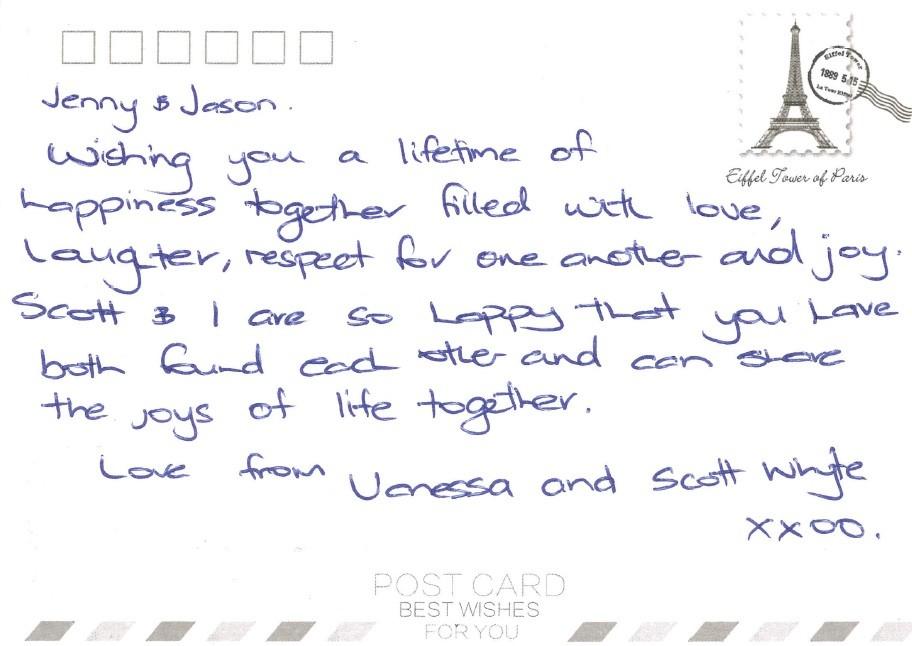 Eiffel Tower
1889 5.15
La Tour Eiffel
Eiffel Tower of Paris
Jenny & Jason.
Wishing you a lifetime of
happiness together filled with love,
Laughter, respect for one another and joy.
Scott & I are so happy that you have
both found each other and can share
the joys of life together.
Love from Vanessa and Scott Whyte
xxoo.
POST CARD
BEST WISHES
FOR YOU